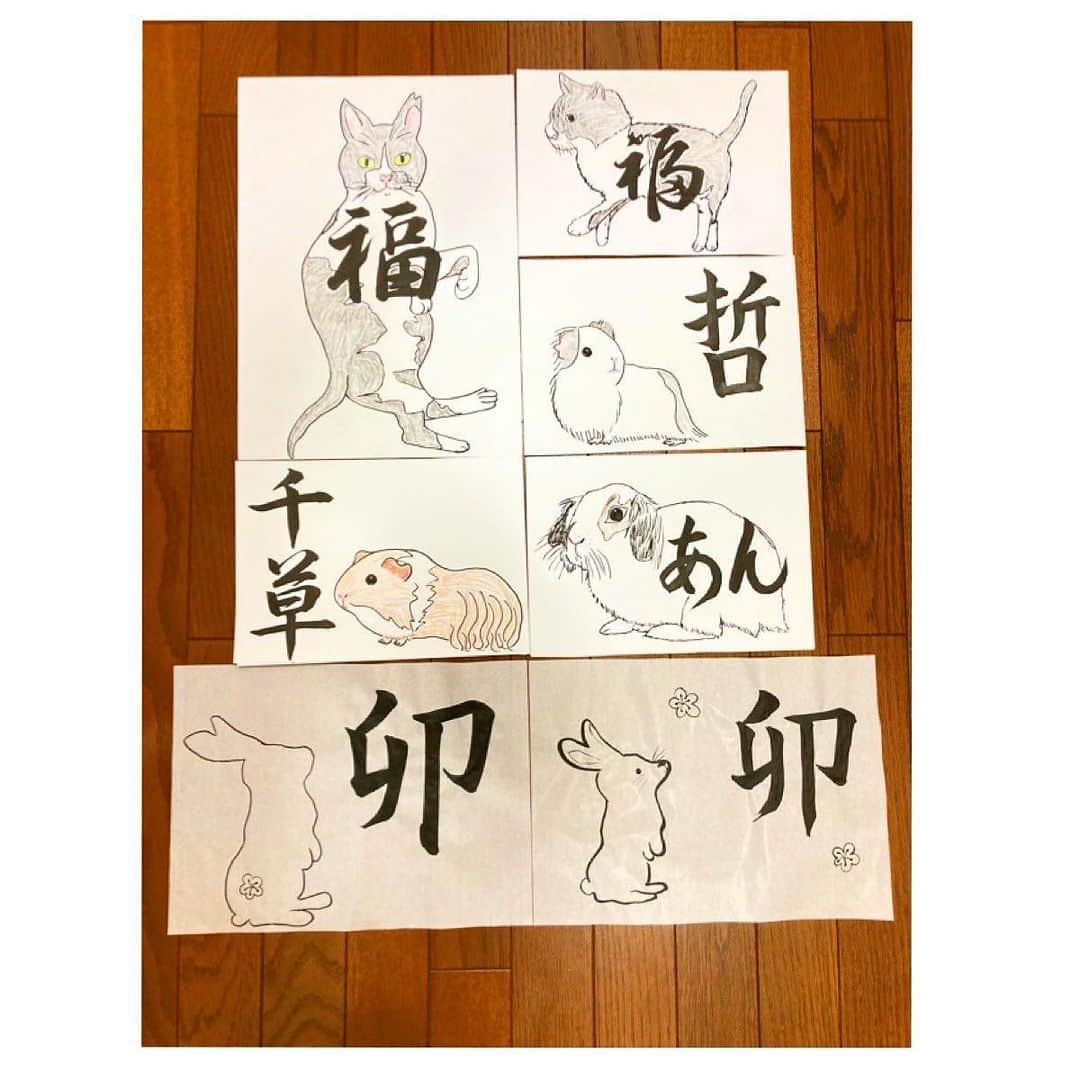 福
福
哲
千草
あん
卯
卯